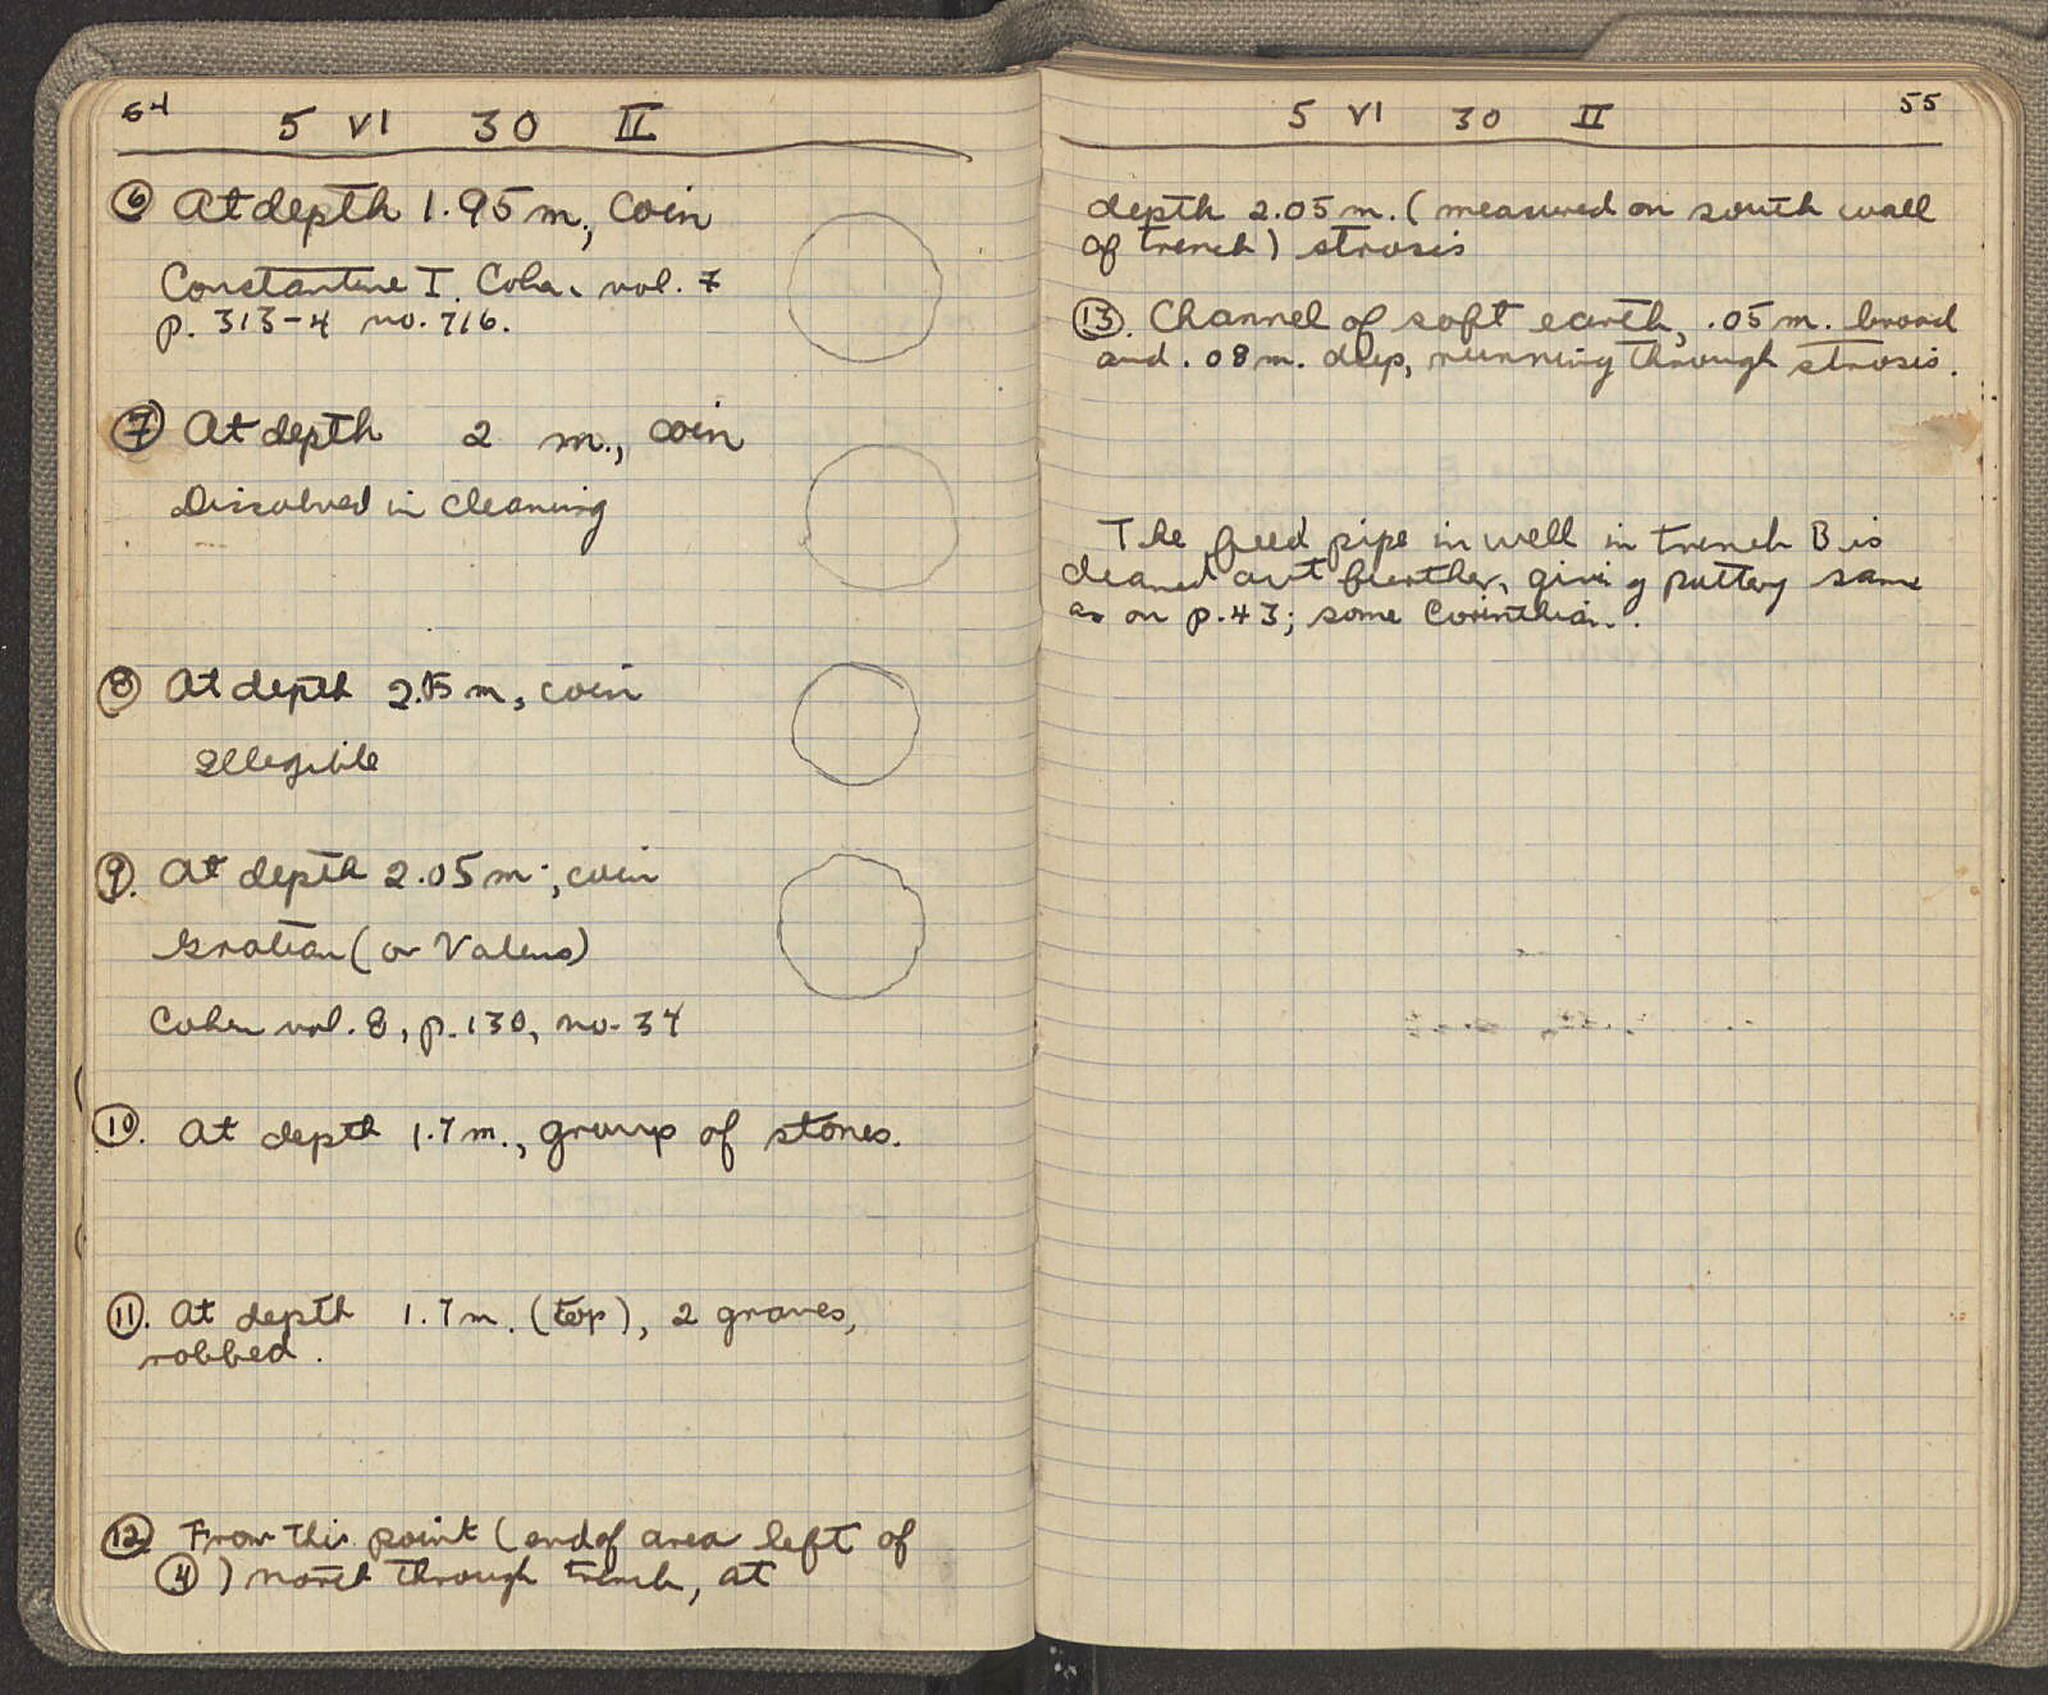 54
5 VI 30 II
⑥ At depth 1.95 m., coin
Constantine I. Cohen vol. 7
p. 313-4 no. 716.
⑦ At depth 2 m., coin
Dissolved in cleaning
⑧ At depth 2.05 m, coin
Illegible
⑨. At depth 2.05 m., coin
Gratian (or Valens)
Cohen vol. 8, p. 130, no. 34
⑩. At depth 1.7 m., group of stones.
⑪. At depth 1.7 m. (top), 2 graves,
robbed.
⑫ From this point (end of area left of
④) north through trench, at
5 VI 30 II
55
depth 2.05 m. (measured on south wall
of trench) strosis
⑬. Channel of soft earth, .05 m. broad
and .08 m. deep, running through strosis.
The feed pipe in well in trench B is
cleaned out further, giving pottery same
as on p. 43; some Corinthian.